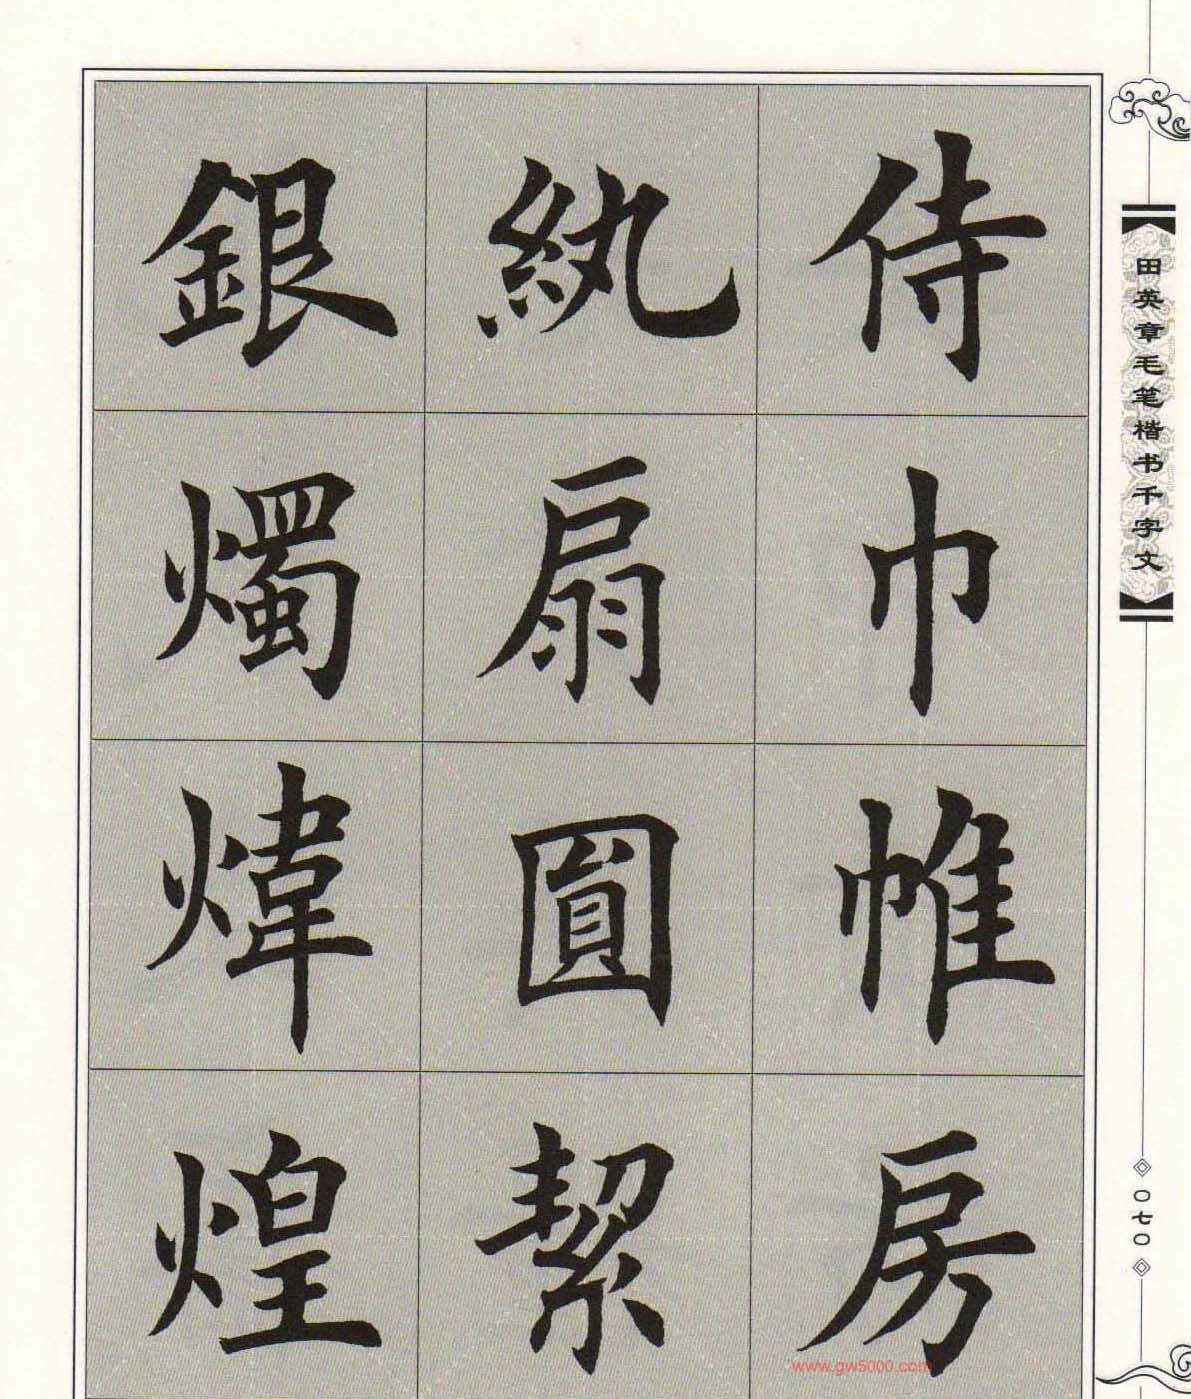 田英章毛笔楷书千字文
侍巾帷房
紈扇圓絜
銀燭煒煌
〇七〇
www.gw5000.com